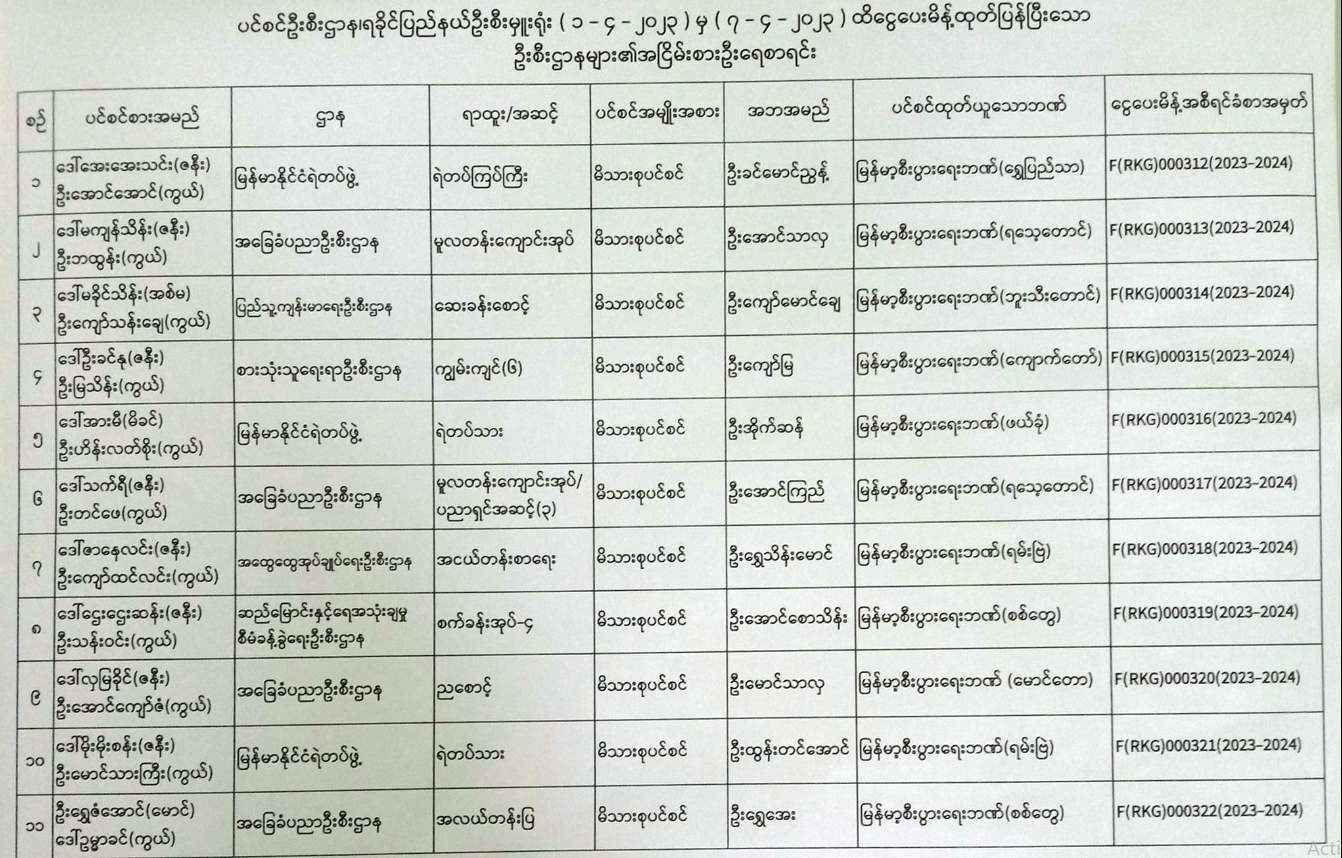 ပင်စင်ဦးစီးဌာန၊ရခိုင်ပြည်နယ်ဦးစီးမှူးရုံး ( ၁ - ၄ - ၂၀၂၃ ) မှ ( ၇ - ၄ - ၂၀၂၃ ) ထိငွေပေးမိန့်ထုတ်ပြန်ပြီးသော
ဦးစီးဌာနများ၏အငြိမ်းစားဦးရေစာရင်း
စဉ် ပင်စင်စားအမည် ဌာန ရာထူး/အဆင့် ပင်စင်အမျိုးအစား အဘအမည် ပင်စင်ထုတ်ယူသောဘဏ် ငွေပေးမိန့်အစီရင်ခံစာအမှတ်
၁ ဒေါ်အေးအေးသင်း(ဇနီး) မြန်မာနိုင်ငံရဲတပ်ဖွဲ့ ရဲတပ်ကြပ်ကြီး မိသားစုပင်စင် ဦးခင်မောင်ညွန့် မြန်မာ့စီးပွားရေးဘဏ်(ရွှေပြည်သာ) F(RKG)000312(2023-2024)
ဦးအောင်အောင်(ကွယ်)
၂ ဒေါ်မကျန်သိန်း(ဇနီး) အခြေခံပညာဦးစီးဌာန မူလတန်းကျောင်းအုပ် မိသားစုပင်စင် ဦးအောင်သာလှ မြန်မာ့စီးပွားရေးဘဏ်(ရသေ့တောင်) F(RKG)000313(2023-2024)
ဦးဘထွန်း(ကွယ်)
၃ ဒေါ်မခိုင်သိန်း(အစ်မ) ပြည်သူ့ကျန်းမာရေးဦးစီးဌာန ဆေးခန်းစောင့် မိသားစုပင်စင် ဦးကျော်မောင်ချေ မြန်မာ့စီးပွားရေးဘဏ်(ဘူးသီးတောင်) F(RKG)000314(2023-2024)
ဦးကျော်သန်းချေ(ကွယ်)
၄ ဒေါ်ဦးခင်နု(ဇနီး) စားသုံးသူရေးရာဦးစီးဌာန ကျွမ်းကျင်(၆) မိသားစုပင်စင် ဦးကျော်မြ မြန်မာ့စီးပွားရေးဘဏ်(ကျောက်တော်) F(RKG)000315(2023-2024)
ဦးမြသိန်း(ကွယ်)
၅ ဒေါ်အားမီ(မိခင်) မြန်မာနိုင်ငံရဲတပ်ဖွဲ့ ရဲတပ်သား မိသားစုပင်စင် ဦးအိုက်ဆန် မြန်မာ့စီးပွားရေးဘဏ်(ဖယ်ခုံ) F(RKG)000316(2023-2024)
ဦးဟိန်းလတ်စိုး(ကွယ်)
၆ ဒေါ်သက်ရီ(ဇနီး) အခြေခံပညာဦးစီးဌာန မူလတန်းကျောင်းအုပ်/ မိသားစုပင်စင် ဦးအောင်ကြည် မြန်မာ့စီးပွားရေးဘဏ်(ရသေ့တောင်) F(RKG)000317(2023-2024)
ဦးတင်ဖေ(ကွယ်) ပညာရှင်အဆင့်(၃)
၇ ဒေါ်ဇာနေလင်း(ဇနီး) အထွေထွေအုပ်ချုပ်ရေးဦးစီးဌာန အငယ်တန်းစာရေး မိသားစုပင်စင် ဦးရွှေသိန်းမောင် မြန်မာ့စီးပွားရေးဘဏ်(ရမ်းဗြဲ) F(RKG)000318(2023-2024)
ဦးကျော်ထင်လင်း(ကွယ်)
၈ ဒေါ်ဌေးဌေးဆန်း(ဇနီး) ဆည်မြောင်းနှင့်ရေအသုံးချမှု စက်ခန်းအုပ်-၄ မိသားစုပင်စင် ဦးအောင်စောသိန်း မြန်မာ့စီးပွားရေးဘဏ်(စစ်တွေ) F(RKG)000319(2023-2024)
ဦးသန်းဝင်း(ကွယ်) စီမံခန့်ခွဲရေးဦးစီးဌာန
၉ ဒေါ်လှမြခိုင်(ဇနီး) အခြေခံပညာဦးစီးဌာန ညစောင့် မိသားစုပင်စင် ဦးမောင်သာလှ မြန်မာ့စီးပွားရေးဘဏ် (မောင်တော) F(RKG)000320(2023-2024)
ဦးအောင်ကျော်ဇံ(ကွယ်)
၁၀ ဒေါ်မိုးမိုးစန်း(ဇနီး) မြန်မာနိုင်ငံရဲတပ်ဖွဲ့ ရဲတပ်သား မိသားစုပင်စင် ဦးထွန်းတင်အောင် မြန်မာ့စီးပွားရေးဘဏ်(ရမ်းဗြဲ) F(RKG)000321(2023-2024)
ဦးမောင်သားကြီး(ကွယ်)
၁၁ ဦးရွှေဇံအောင်(မောင်) အခြေခံပညာဦးစီးဌာန အလယ်တန်းပြ မိသားစုပင်စင် ဦးရွှေအေး မြန်မာ့စီးပွားရေးဘဏ်(စစ်တွေ) F(RKG)000322(2023-2024)
ဒေါ်ဥမ္မာခင်(ကွယ်)